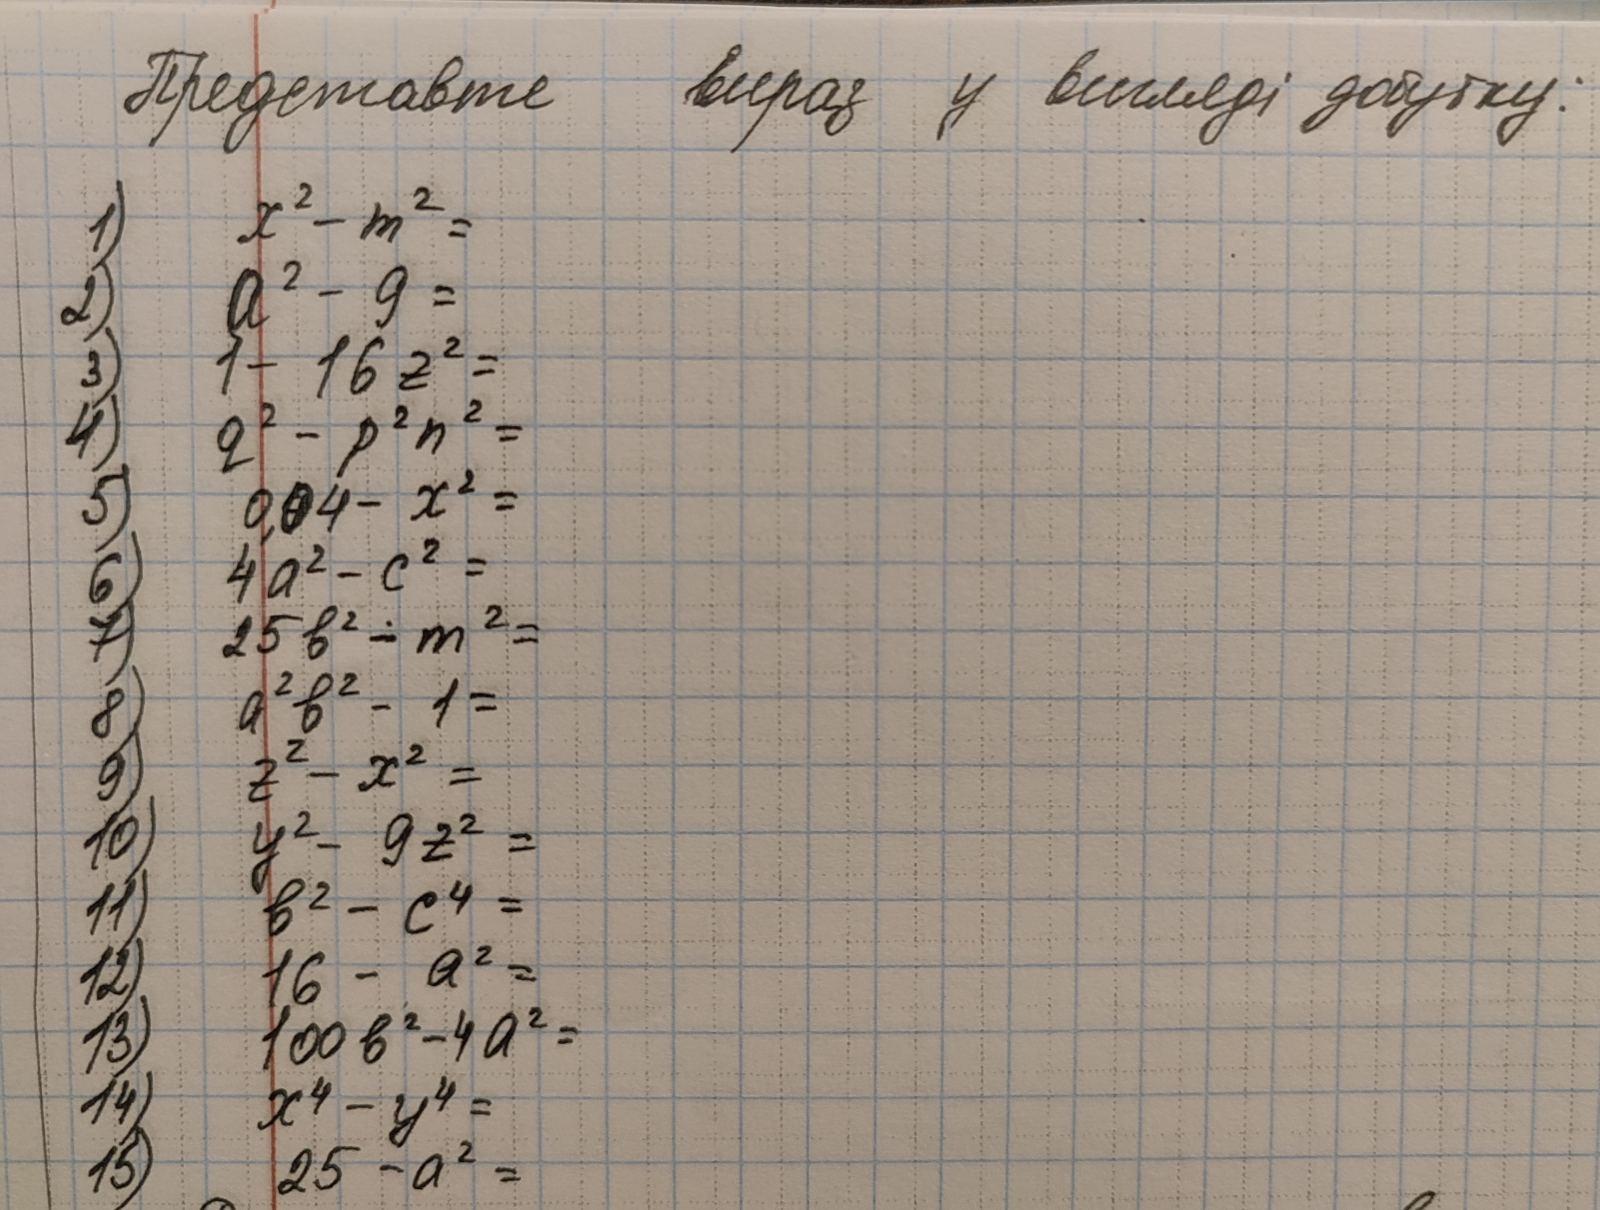 Представте вираз у вигляді добутку:
1) x² - m² =
2) a² - 9 =
3) 1 - 16z² =
4) q² - p²n² =
5) 0,04 - x² =
6) 4a² - c² =
7) 25b² - m² =
8) a²b² - 1 =
9) z² - x² =
10) y² - 9z² =
11) b² - c⁴ =
12) 16 - a² =
13) 100b² - 4a² =
14) x⁴ - y⁴ =
15) 25 - a² =